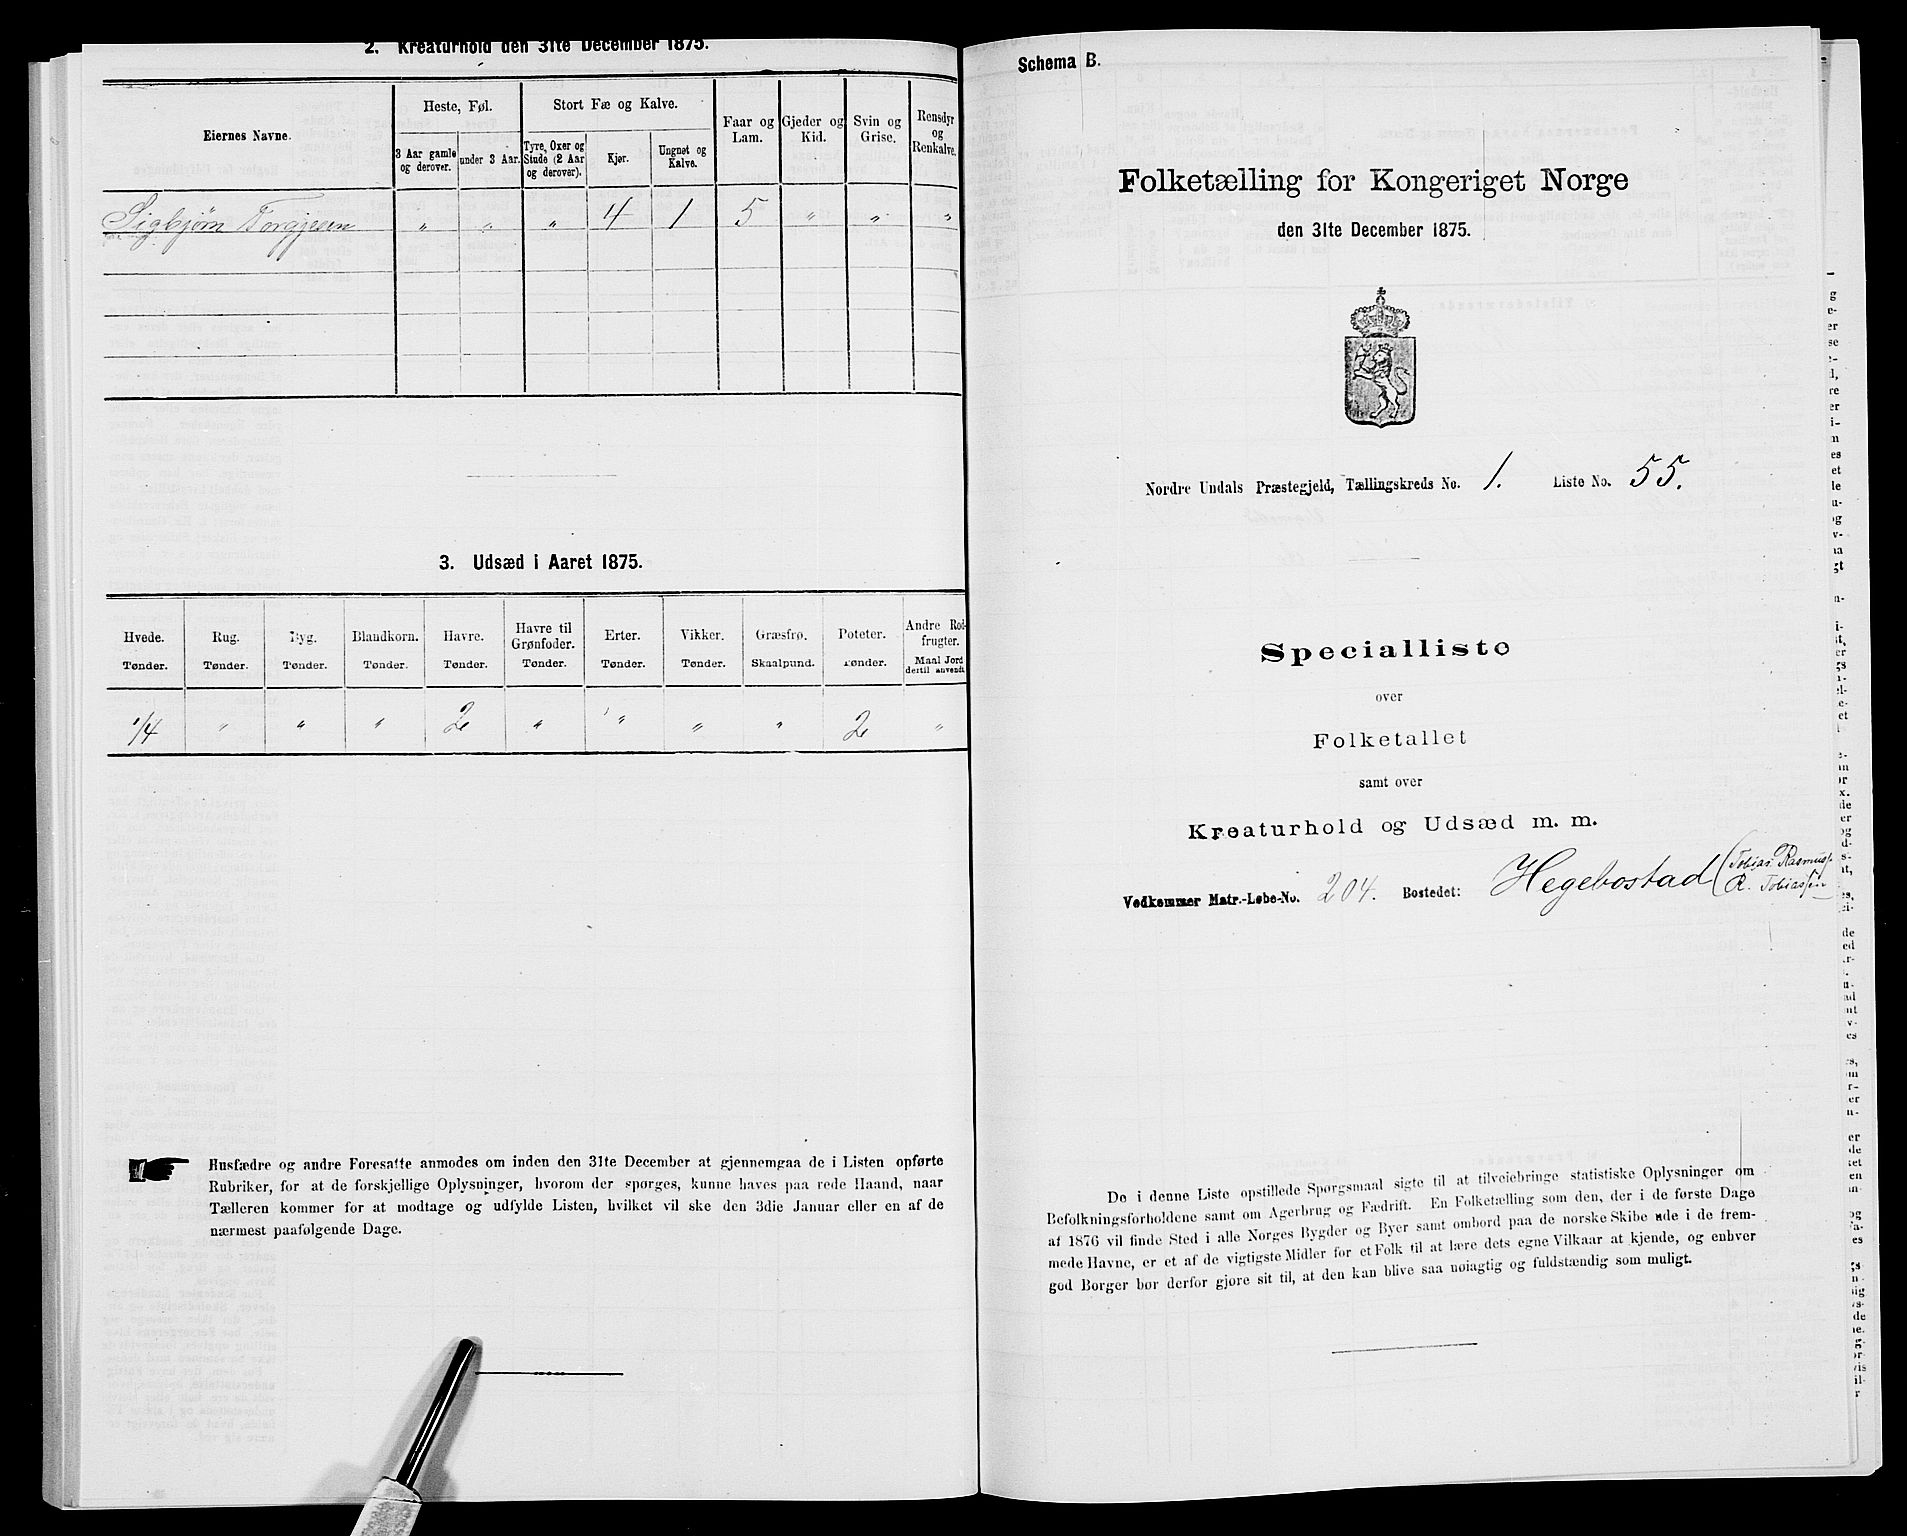 2. Kreaturhold den 31te December 1875.
Eiernes Navne.
Heste, Føl.
Stort Fæ og Kalve.
Faar og Lam.
Gjeder og Kid.
Svin og Grise.
Rensdyr og Renkalve.
3 Aar gamle og derover.
under 3 Aar.
Tyre, Oxer og Stude (2 Aar og derover).
Kjør.
Ungnøt og Kalve.
Sigbjørn Torgjesen " " " 4 1 5 " " "
3. Udsæd i Aaret 1875.
Hvede. Rug. Byg. Blandkorn. Havre. Havre til Grønfoder. Erter. Vikker. Græsfrø. Poteter. Andre Rodfrugter.
Tønder. Tønder. Tønder. Tønder. Tønder. Tønder. Tønder. Tønder. Skaalpund. Tønder. Maal Jord dertil anvendt
1/4 " " " 2 " " " " 2 "
Husfædre og andre Foresatte anmodes om inden den 31te December at gjennemgaa de i Listen opførte
Rubriker, for at de forskjellige Oplysninger, hvorom der spørges, kunne haves paa rede Haand, naar
Tælleren kommer for at modtage og udfylde Listen, hvilket vil ske den 3die Januar eller en af de
nærmest paafølgende Dage.
Schema B.
Folketælling for Kongeriget Norge
den 31te December 1875.
Nordre Undals Præstegjeld, Tællingskreds No. 1. Liste No. 55.
Specialliste
over
Folketallet
samt over
Kreaturhold og Udsæd m. m.
Vedkommer Matr.-Løbe-No. 204. Bostedet: Hegebostad (Tobias Rasmuss
R. Tobiassen
De i denne Liste opstillede Spørgsmaal sigte til at tilveiebringe statistiske Oplysninger om
Befolkningsforholdene samt om Agerbrug og Fædrift. En Folketælling som den, der i de første Dage
af 1876 vil finde Sted i alle Norges Bygder og Byer samt ombord paa de norske Skibe ude i de frem-
mede Havne, er et af de vigtigste Midler for et Folk til at lære dets egne Vilkaar at kjende, og enhver
god Borger bør derfor gjøre sit til, at den kan blive saa nøiagtig og fuldstændig som muligt.